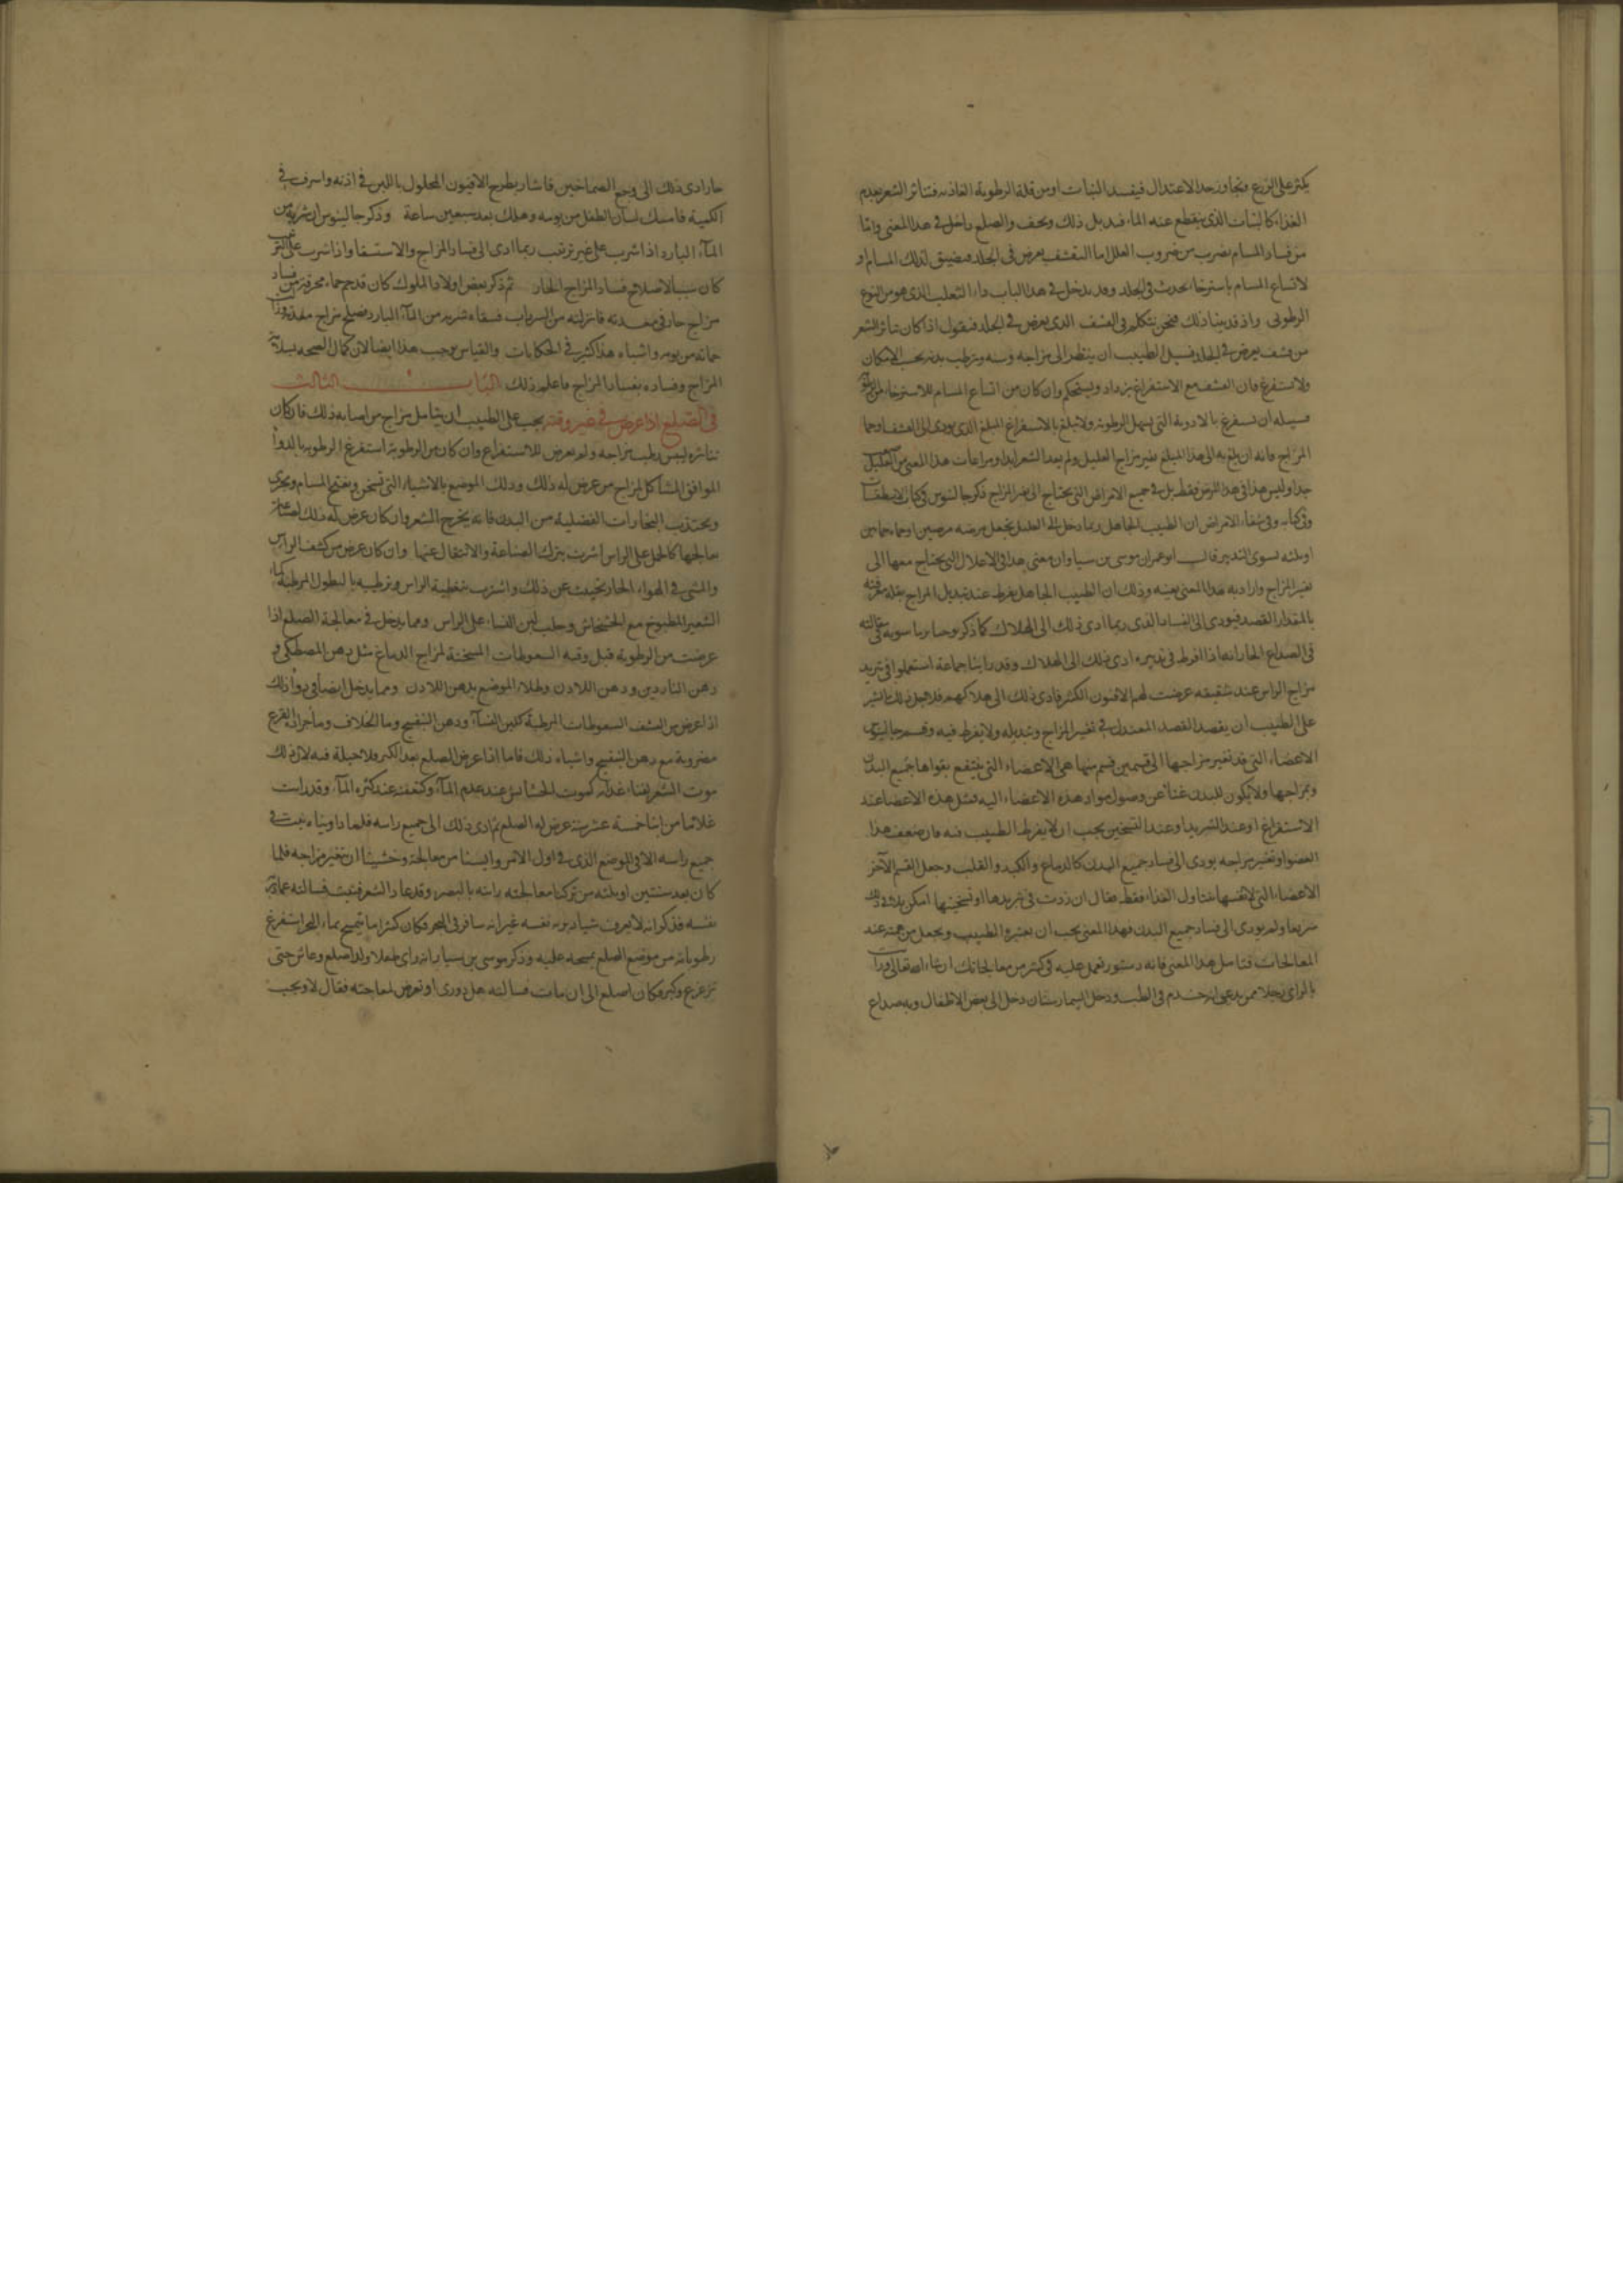 يكثر على الزرع وتجاوز حد الاعتدال فيفسد النبات او من قلة الرطوبة الغاذيه فتناثر الشعر بعدم
الغذاء كالنبات الذى ينقطع عنه الماء فيدبل ذلك ويجف والصلع داخل فى هذا المعنى واما
من فساد المسام بضرب من ضروب العلل اما التقشف يعرض فى الجلد فيضيق لذلك المسام او
لاتساع المسام باسترخاء يحدث فى الجلد وقد يدخل فى هذا الباب داء الثعلب الذى هو من النوع
الرطوبى واذ قد بينا ذلك فنحن نتكلم فى القشف الذى يعرض فى الجلد فنقول اذا كان تناثر الشعر
من قشف يعرض فى الجلد فسبيل الطبيب ان ينظر الى مزاجه وسنه ويرطب بدنه بحسب الامكان
ولا يستفرغ فان القشف مع الاستفراغ يزداد ويستحكم وان كان من اتساع المسام للاسترخاء من الرطوبة
فسبيله ان يستفرغ بالادوية التى تسهل الرطوبة ولا يبلغ بالاستفراغ المبلغ الذى يودى الى القشف
المزاج فانه ان بلغ به الى هذا المبلغ تغير مزاج العليل ولم يعد الشعر ابدا ومراعات هذا المعنى
جدا وليس هذا فى هذا المرض فقط بل فى جميع الامراض التى يحتاج الى تغير المزاج ذكر جالينوس فى كتاب الاسطقسات
وفى كتابه فى شفاء الامراض ان الطبيب الجاهل ربما دخل الى العليل فجعل مرضه مرضين او حماه حمايين
او ثلثه لسوى التدبير قال ابو عمران موسى بن سيار ان معنى هذا فى الاعلال التى يحتاج معها الى
تغير المزاج واراد به هذا المعنى بعينه وذلك ان الطبيب الجاهل يفرط عند تبديل المزاج بقلة معرفته
بالمقدار القصد فيودى الى الفساد الذى ربما ادى ذلك الى الهلاك كما ذكر يوحنا بن ماسويه فى مقالته
فى الصداع الحار انه اذا افرط فى تدبيره ادى ذلك الى الهلاك وقد راينا جماعة استعملوا فى تبريد
مزاج الراس عند شقيقه عرضت لهم الافيون الكثير فادى ذلك الى هلاكهم فلاجل ذلك
على الطبيب ان يقصد القصد المعتدل فى تغير المزاج وتبديله ولا يفرط فيه وقسم جالينوس
الاعضاء التى قد تغير مزاجها الى قسمين قسم منها هى الاعضاء التى ينتفع بقواها جميع البدن
وبمزاجها ولا يكون للبدن غناء عن وصول مواد هذه الاعضاء اليه فمثل هذه الاعضا عند
الاستفراغ او عند التبريد او عند التسخين يجب ان لا يفرط الطبيب فيه فان ضعف هذا
العضو او تغير مزاجه يودى الى فساد جميع البدن كالدماغ والكبد والقلب وجعل القسم الآخر
الاعضاء التى لانفسها تتناول الغذاء فقط فقال ان زدت فى تبريدها او تسخينها امكن
سريعا ولم يودى الى فساد جميع البدن فهذا المعنى يجب ان يعتبره الطبيب ويجعل من همته عند
المعالجات فتامل هذا المعنى فانه دستور تعمل عليه فى كثير من معالجاتك ان شاء الله تعالى ورايت
بالراى رجلا ممن يدعى انه خدم فى الطب ودخل البيمارستان دخل الى بعض الاطفال وبه صداع
حار ادى ذلك الى وجع الصماخين فاشار بطرح الافيون المحلول باللبن فى اذنه واسرف فى
الكمية فامسك لسان الطفل من يومه وهلك بعد سبعين ساعة وذكر جالينوس ان شربة من
المآء البارد اذا شرب على غير ترتيب ربما ادى الى فساد المزاج والاستسقا واذا شرب على
كان سببا لاصلاح فساد المزاج الحار ثم ذكر بعض اولاد الملوك كان قد حم حماء محرقة من فساد
مزاج حار فى معدته فانزلته من السرداب فسقاه شربه من المآء البارد فصلح مزاج معدته
حماته من يومه واشباه هذا كثير فى الحكايات والقياس يوجب هذا ايضا لان كمال الصحه بسلامة
المزاج وفساده بفساد المزاج فاعلم ذلك الباب الثالث
فى الصلع اذا عرض فى غير وقته يجب على الطبيب ان يتامل مزاج من اصابه ذلك فان كان
تناثره ليبس رطب مزاجه ولم يعرض للاستفراغ وان كان من الرطوبة استفرغ الرطوبه بالدواء
الموافق المشاكل لمزاج من عرض له ذلك ودلك الموضع بالاشياء التى تسخن وتفتح المسام
ويجتذب البخارات الفضلية من البدن فانه يخرج الشعر وان كان عرض له ذلك لصناعة
يعالجها كالحمل على الراس اشرت بترك الصناعة والانتقال عنها وان كان عرض من كشف الراس
والمشى فى الهواء الحار نحيت عن ذلك واشرت بتغطية الراس وترطيبه بالنطول المرطبة كماء
الشعير المطبوخ مع الخشخاش وحلب لبن النساء على الراس ومما يدخل فى معالجة الصلع اذا
عرضت من الرطوبة قبل وقته السعوطات المسخنة لمزاج الدماغ مثل دهن المصطكى و
دهن الناردين ودهن اللادن وطلاء الموضع بدهن اللادن ومما يدخل ايضا فى دواء ذلك
اذا عرض من القشف السعوطات المرطبة كلبن النسآء ودهن البنفسج وما الخلاف وما جرادة القرع
مضروبة مع دهن البنفسج واشباه ذلك فاما اذا عرض الصلع بعد الكبر فلا حيلة فيه لان ذلك
موت الشعر لفناء غذائه كموت الحشايش عند عدم المآء وكتعفنه عند كثرة المآء وقد رايت
غلاما من ابنا خمسة عشر سنة عرض له الصلع ثم ادى ذلك الى جميع راسه فلما داويناه نبت فى
جميع راسه الا فى الموضع الذى فى اول الامر وايسنا من معالجته وخشينا ان تغير مزاجه فلما
كان بعد سنتين او ثلثه من تركنا معالجته رايته بالبصره وقد عاد الشعر فنبت فسالته عما
نفسه فذكر انه لا يعرف شيا دبر به نفسه غير انه سافر فى البحر وكان كثيرا ما يتمسح بماء البحر استفرغ
رطوباته من موضع الصلع بمسحه عليه وذكر موسى بن سيار انه راى طفلا ولد اصلع وعاش حتى
ترعرع وكبر فكان اصلع الى ان مات فسالته هل دورى او تعرض لمعالجته فقال لا ويجب